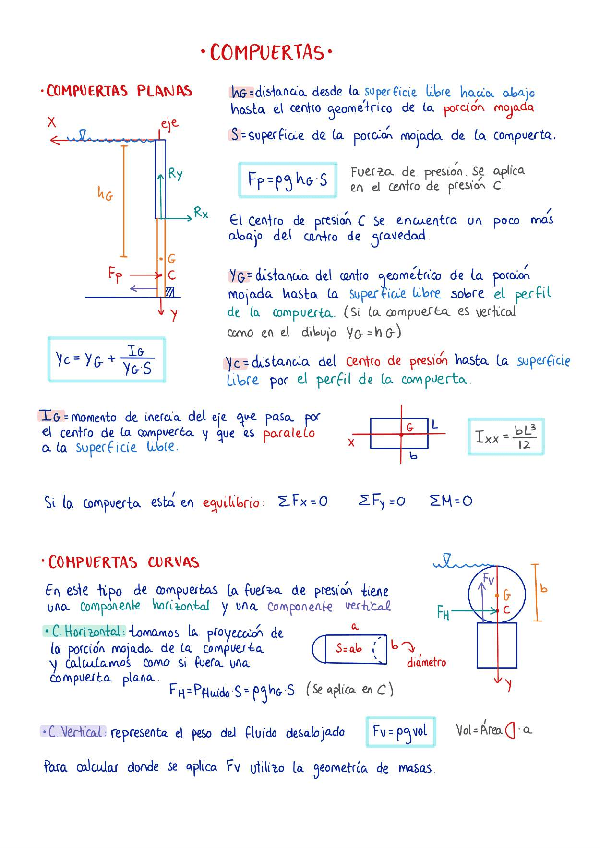 ·COMPUERTAS·
·COMPUERTAS PLANAS
X
eje
Ry
hG
Rx
G
Fp
C
Y
yc = yG + IG / yG·S
hG = distancia desde la superficie libre hacia abajo
hasta el centro geométrico de la porción mojada
S = superficie de la porción mojada de la compuerta.
Fp = ρghG·S
Fuerza de presión. Se aplica
en el centro de presión C
El centro de presión C se encuentra un poco más
abajo del centro de gravedad.
yG = distancia del centro geométrico de la porción
mojada hasta la superficie libre sobre el perfil
de la compuerta. (Si la compuerta es vertical
como en el dibujo yG = hG)
yc = distancia del centro de presión hasta la superficie
libre por el perfil de la compuerta.
IG = momento de inercia del eje que pasa por
el centro de la compuerta y que es paralelo
a la superficie libre.
G
L
X
b
Ixx = bL³ / 12
Si la compuerta está en equilibrio: ΣFx=0 ΣFy=0 ΣM=0
·COMPUERTAS CURVAS
En este tipo de compuertas la fuerza de presión tiene
una componente horizontal y una componente vertical
·C. Horizontal: tomamos la proyección de
la porción mojada de la compuerta
y calculamos como si fuera una
compuerta plana.
FH = Pfluido·S = ρghG·S (Se aplica en C)
a
S=ab
b
diámetro
Fv
G
b
FH
C
Y
·C. Vertical: representa el peso del fluido desalojado
Fv = ρgvol
Vol = Área · a
Para calcular donde se aplica Fv utilizo la geometría de masas.